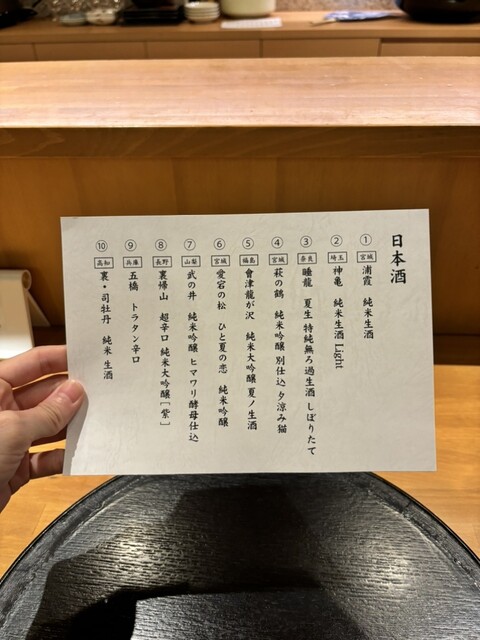 日本酒
① 宮城 浦霞 純米生酒
② 埼玉 神亀 純米生酒 Light
③ 奈良 睡龍 夏生 特純無ろ過生酒 しぼりたて
④ 宮城 萩の鶴 純米吟醸 別仕込 夕涼み猫
⑤ 福島 會津龍が沢 純米大吟醸 夏ノ生酒
⑥ 宮城 愛宕の松 ひと夏の恋 純米吟醸
⑦ 山梨 武の井 純米吟醸 ヒマワリ酵母仕込
⑧ 長野 裏帰山 超辛口 純米大吟醸［紫］
⑨ 兵庫 五橋 トラタン辛口
⑩ 高知 裏・司牡丹 純米 生酒